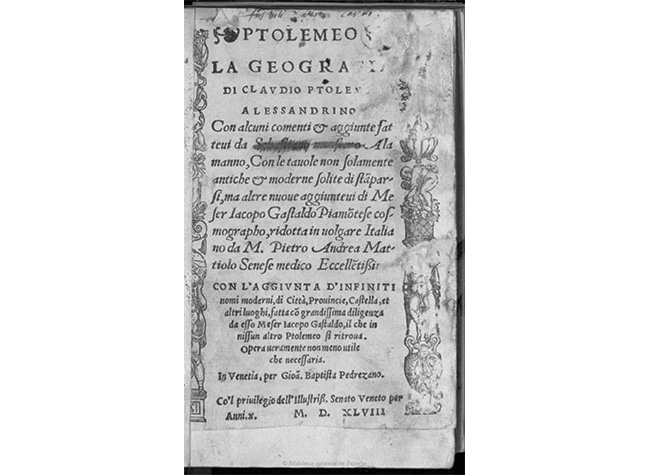 PTOLEMEO
LA GEOGRAFIA
DI CLAVDIO PTOLEM
ALESSANDRINO
Con alcuni comenti & aggiunte fat
teui da Sebastiano munstero Ala
manno, Con le tauole non solamente
antiche & moderne solite di stāpar-
si, ma altre nuoue aggiunteui di Me
ser Iacopo Gastaldo Piamōtese cos
mographo, ridotta in uolgare Italia
no da M. Pietro Andrea Mat
tiolo Senese medico Eccellētissi
CON L'AGGIVNTA D'INFINITI
nomi moderni, di Città, Prouincie, Castella, et
altri luoghi, fatta cō grandissima diligenza
da esso Meser Iacopo Gastaldo, il che in
nissun altro Ptolemeo si ritroua.
Opera ueramente non meno utile
che necessaria.
In Venetia, per Gioā. Baptista Pedrezano.
Co'l priuilegio dell'Illustriss. Senato Veneto per
Anni. x. M. D. XLVIII
© Biblioteca Nacional de España